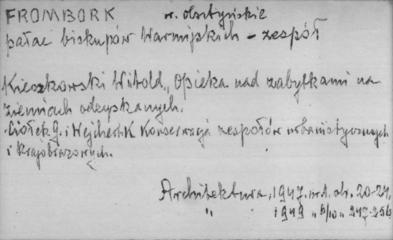 FROMBORK w. olsztyńskie
pałac biskupów Warmijskich - zespół
Kieszkowski Witold „Opieka nad zabytkami na
ziemiach odzyskanych.
Ciołek G. i Wejchert K Konserwacja zespołów urbanistycznych
i krajobrazowych.
Architektura, 1947. nr 1. str. 20-24,
" 1949 " 5/10 " 247-256